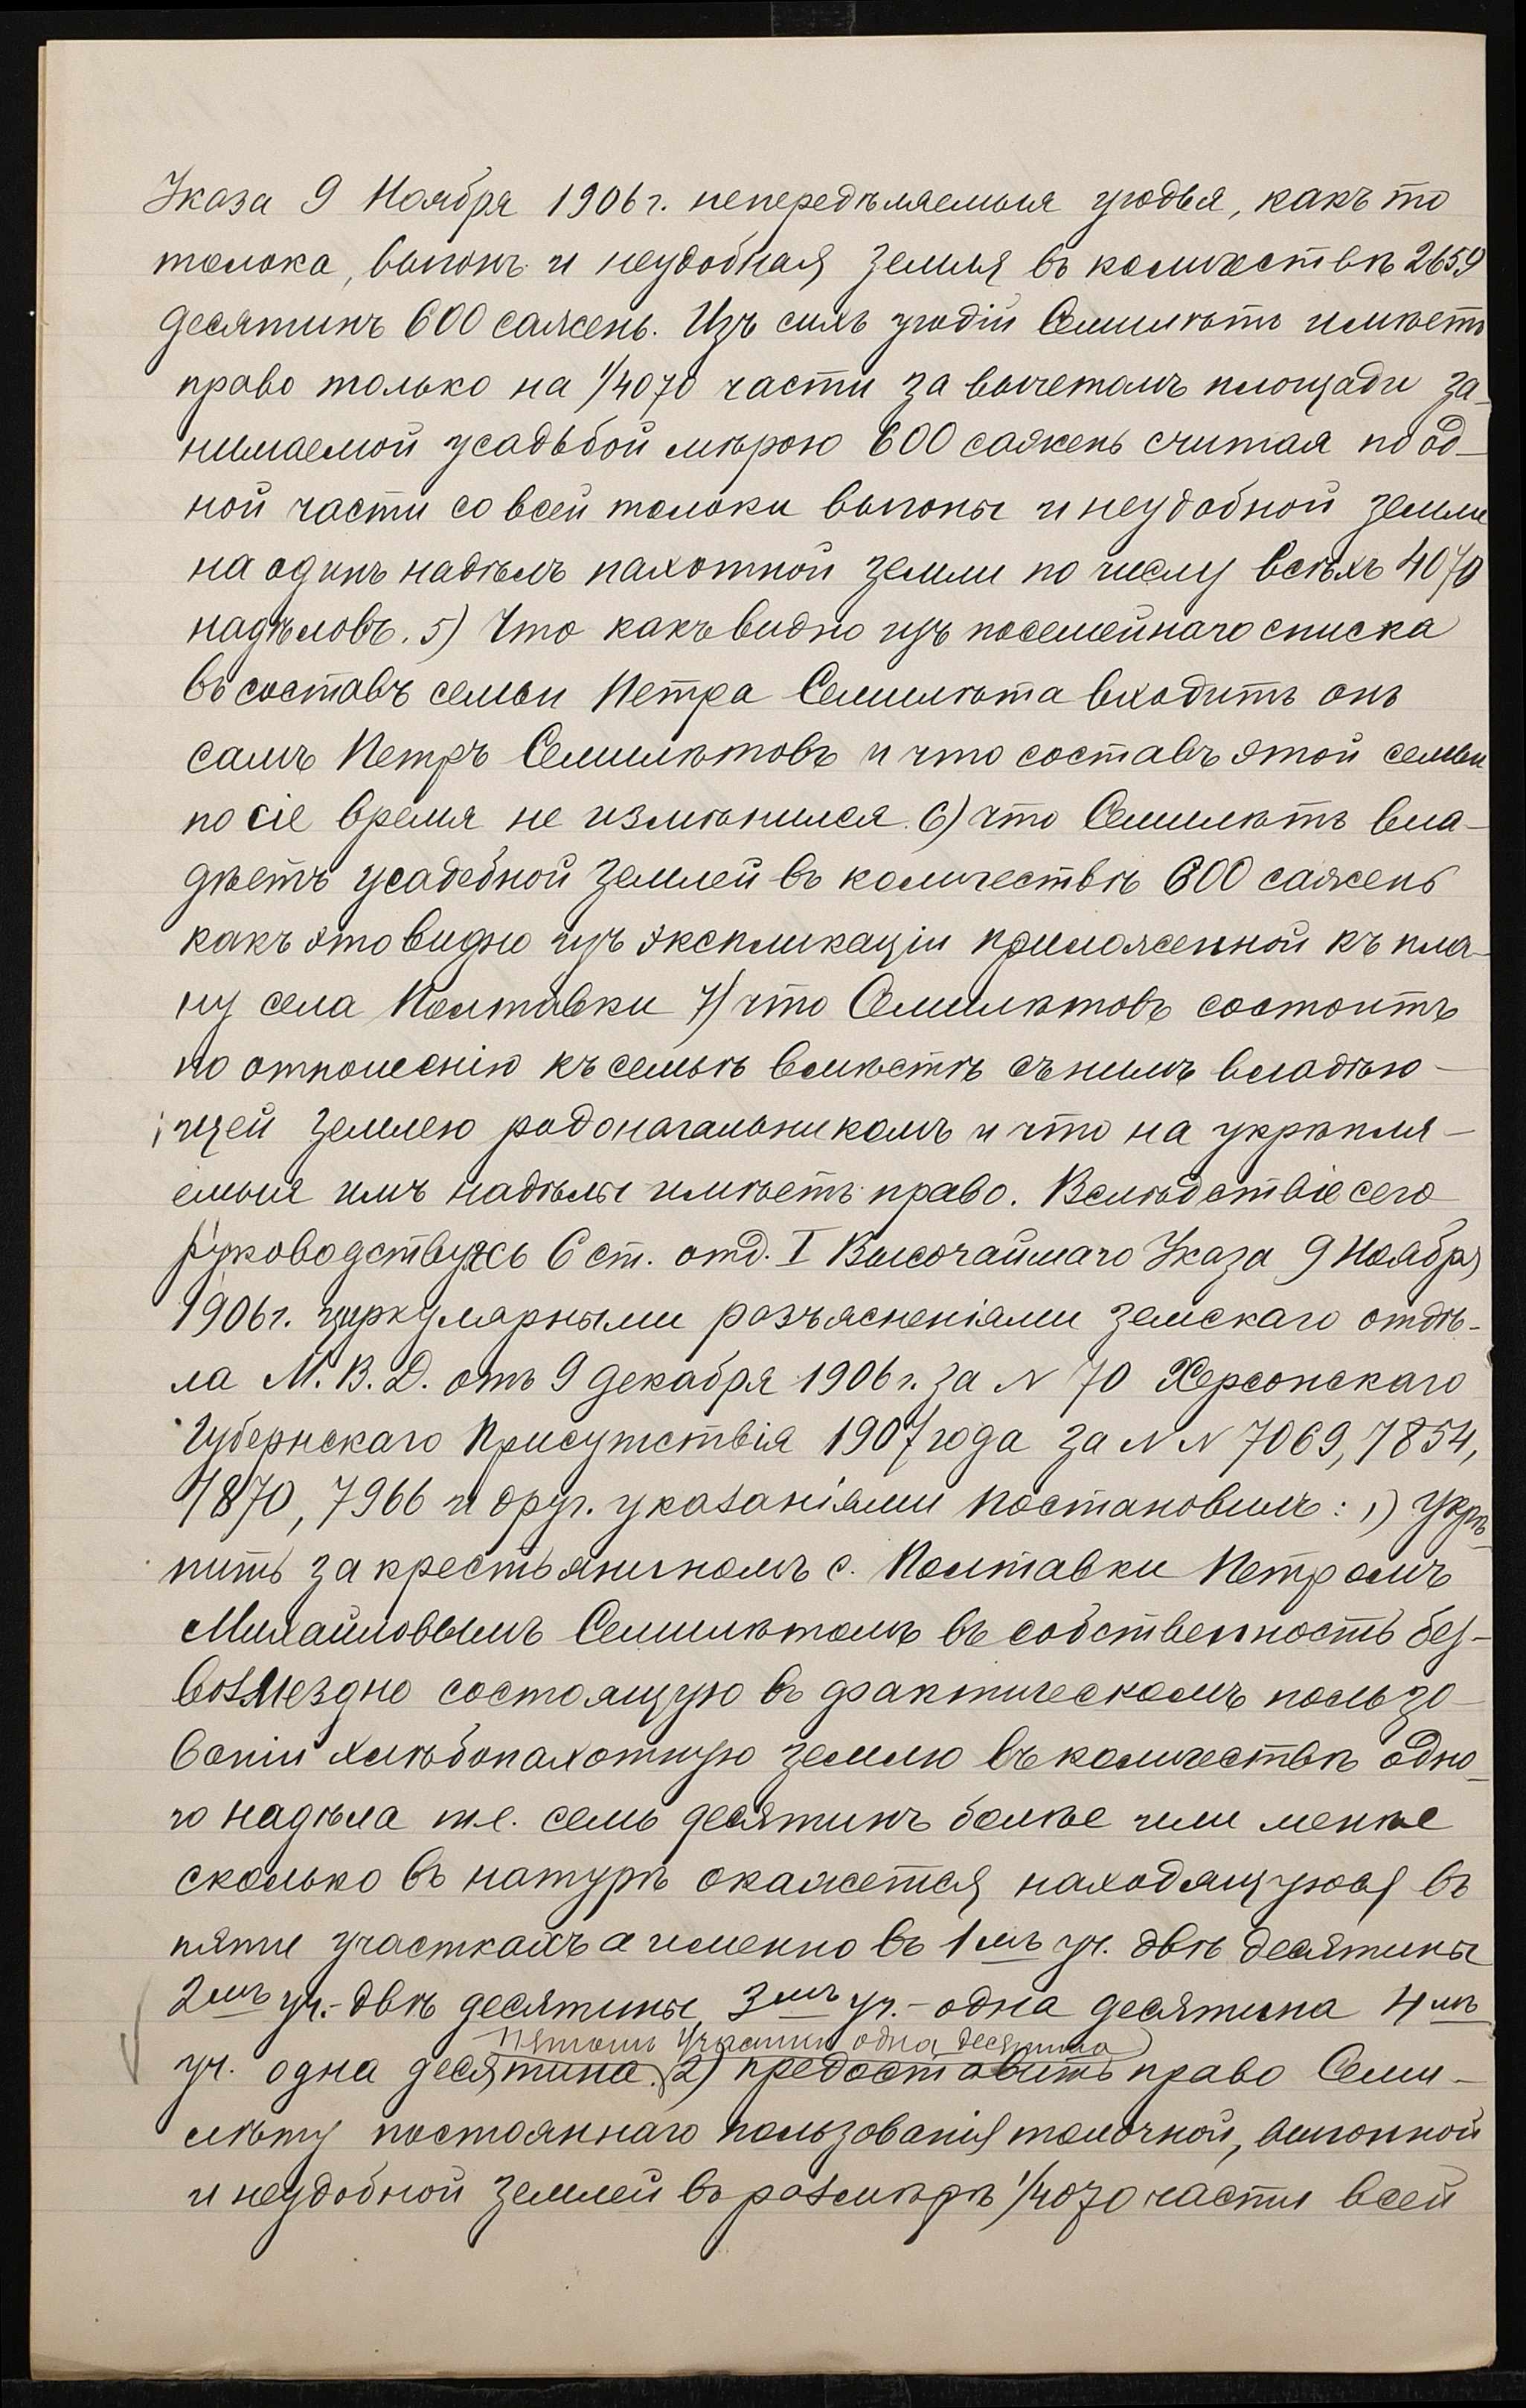 Указа 9 Ноября 1906 г. непередѣляемыя угодья, какъ то
толока, выгонъ и неудобная земля въ количествѣ 2659
десятинъ 600 сажень. Изъ сихъ угодій Семилѣтъ имѣетъ
право только на 1/4070 части за вычетомъ площади за-
нимаемой усадьбой мѣрою 600 сажень считая по од-
ной части со всей толоки выгоны и неудобной земли
на одинъ надѣлъ пахотной земли по числу всѣхъ 4070
надѣловъ. 5) Что какъ видно изъ посемейнаго списка
въ составъ семьи Петра Семилѣта входитъ онъ
самъ Петръ Семилѣтовъ и что составъ этой семьи
по сіе время не измѣнился. 6) что Семилѣтъ вла-
дѣетъ усадебной землей въ количествѣ 600 сажень
какъ это видно изъ экспликаціи приложенной къ пла-
ну села Полтавки 7) что Семилѣтовъ состоитъ
по отношенію къ семьѣ вмѣстѣ съ нимъ владѣю-
щей землею родоначальникомъ и что на укрѣпля-
емыя имъ надѣлы имѣетъ право. Вслѣдствіе сего
руководствуясь 6 ст. отд. I Высочайшаго Указа 9 Ноября
1906 г. циркулярными разъясненіями земскаго отдѣ-
ла М. В. Д. отъ 9 декабря 1906 г. за N 70 Херсонскаго
Губернскаго Присутствія 1907 года за N N 7069, 7854,
7870, 7966 и друг. указаніями постановилъ: 1) Укрѣ-
пить за крестьяниномъ с. Полтавки Петромъ
Михайловымъ Семилѣтомъ въ собственность без-
возмездно состоящую въ фактическомъ пользо-
ваніи хлѣбопахотную землю въ количествѣ одно-
го надѣла т.е. семь десятинъ болѣе или менѣе
сколько въ натурѣ окажется находящуюся въ
пяти участкахъ а именно въ 1мъ уч. двѣ десятины
2мъ уч.- двѣ десятины, 3мъ уч.- одна десятина 4мъ
пятомъ участкѣ одна десятина
уч. одна десятина. 2) предоставить право Семи-
лѣту постояннаго пользованія толочной, выгонной
и неудобной землей въ размѣрѣ 1/4070 части всей